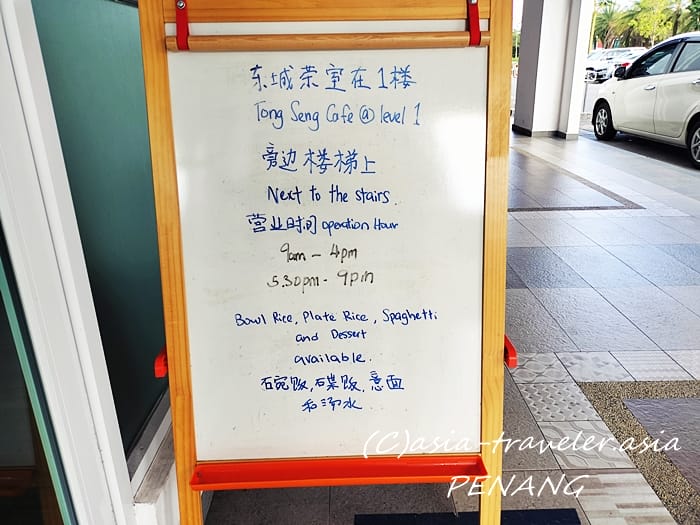 东城荣室在1楼
Tong Seng Cafe @ level 1
旁边楼梯上
Next to the stairs.
营业时间 operation Hour
9am - 4pm
5.30pm - 9pm
Bowl Rice, Plate Rice, Spaghetti
and Dessert
available.
石碗饭,碟饭,意面
和汤水
(C)asia-traveler.asia
PENANG